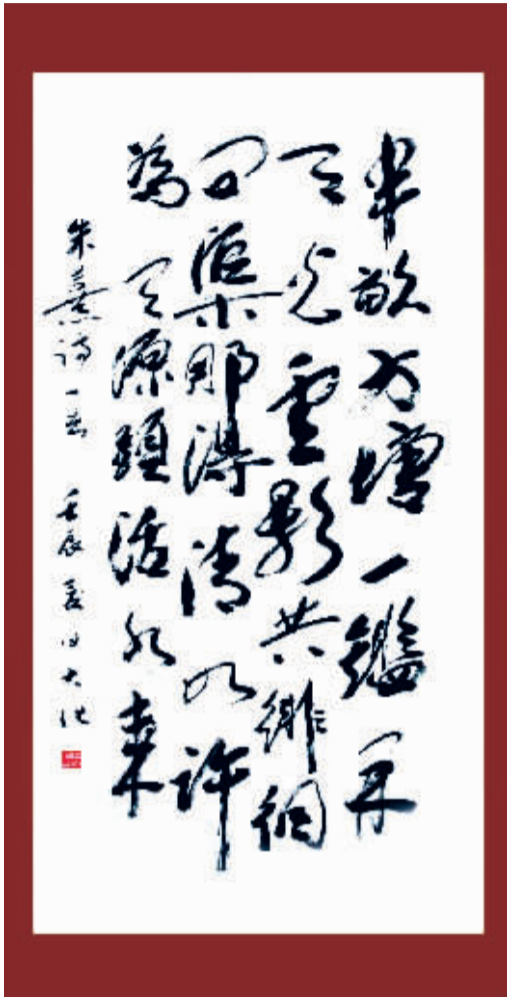 半畝方塘一鑑開
天光雲影共徘徊
問渠那得清如許
為有源頭活水來
朱熹詩一首 壬辰夏